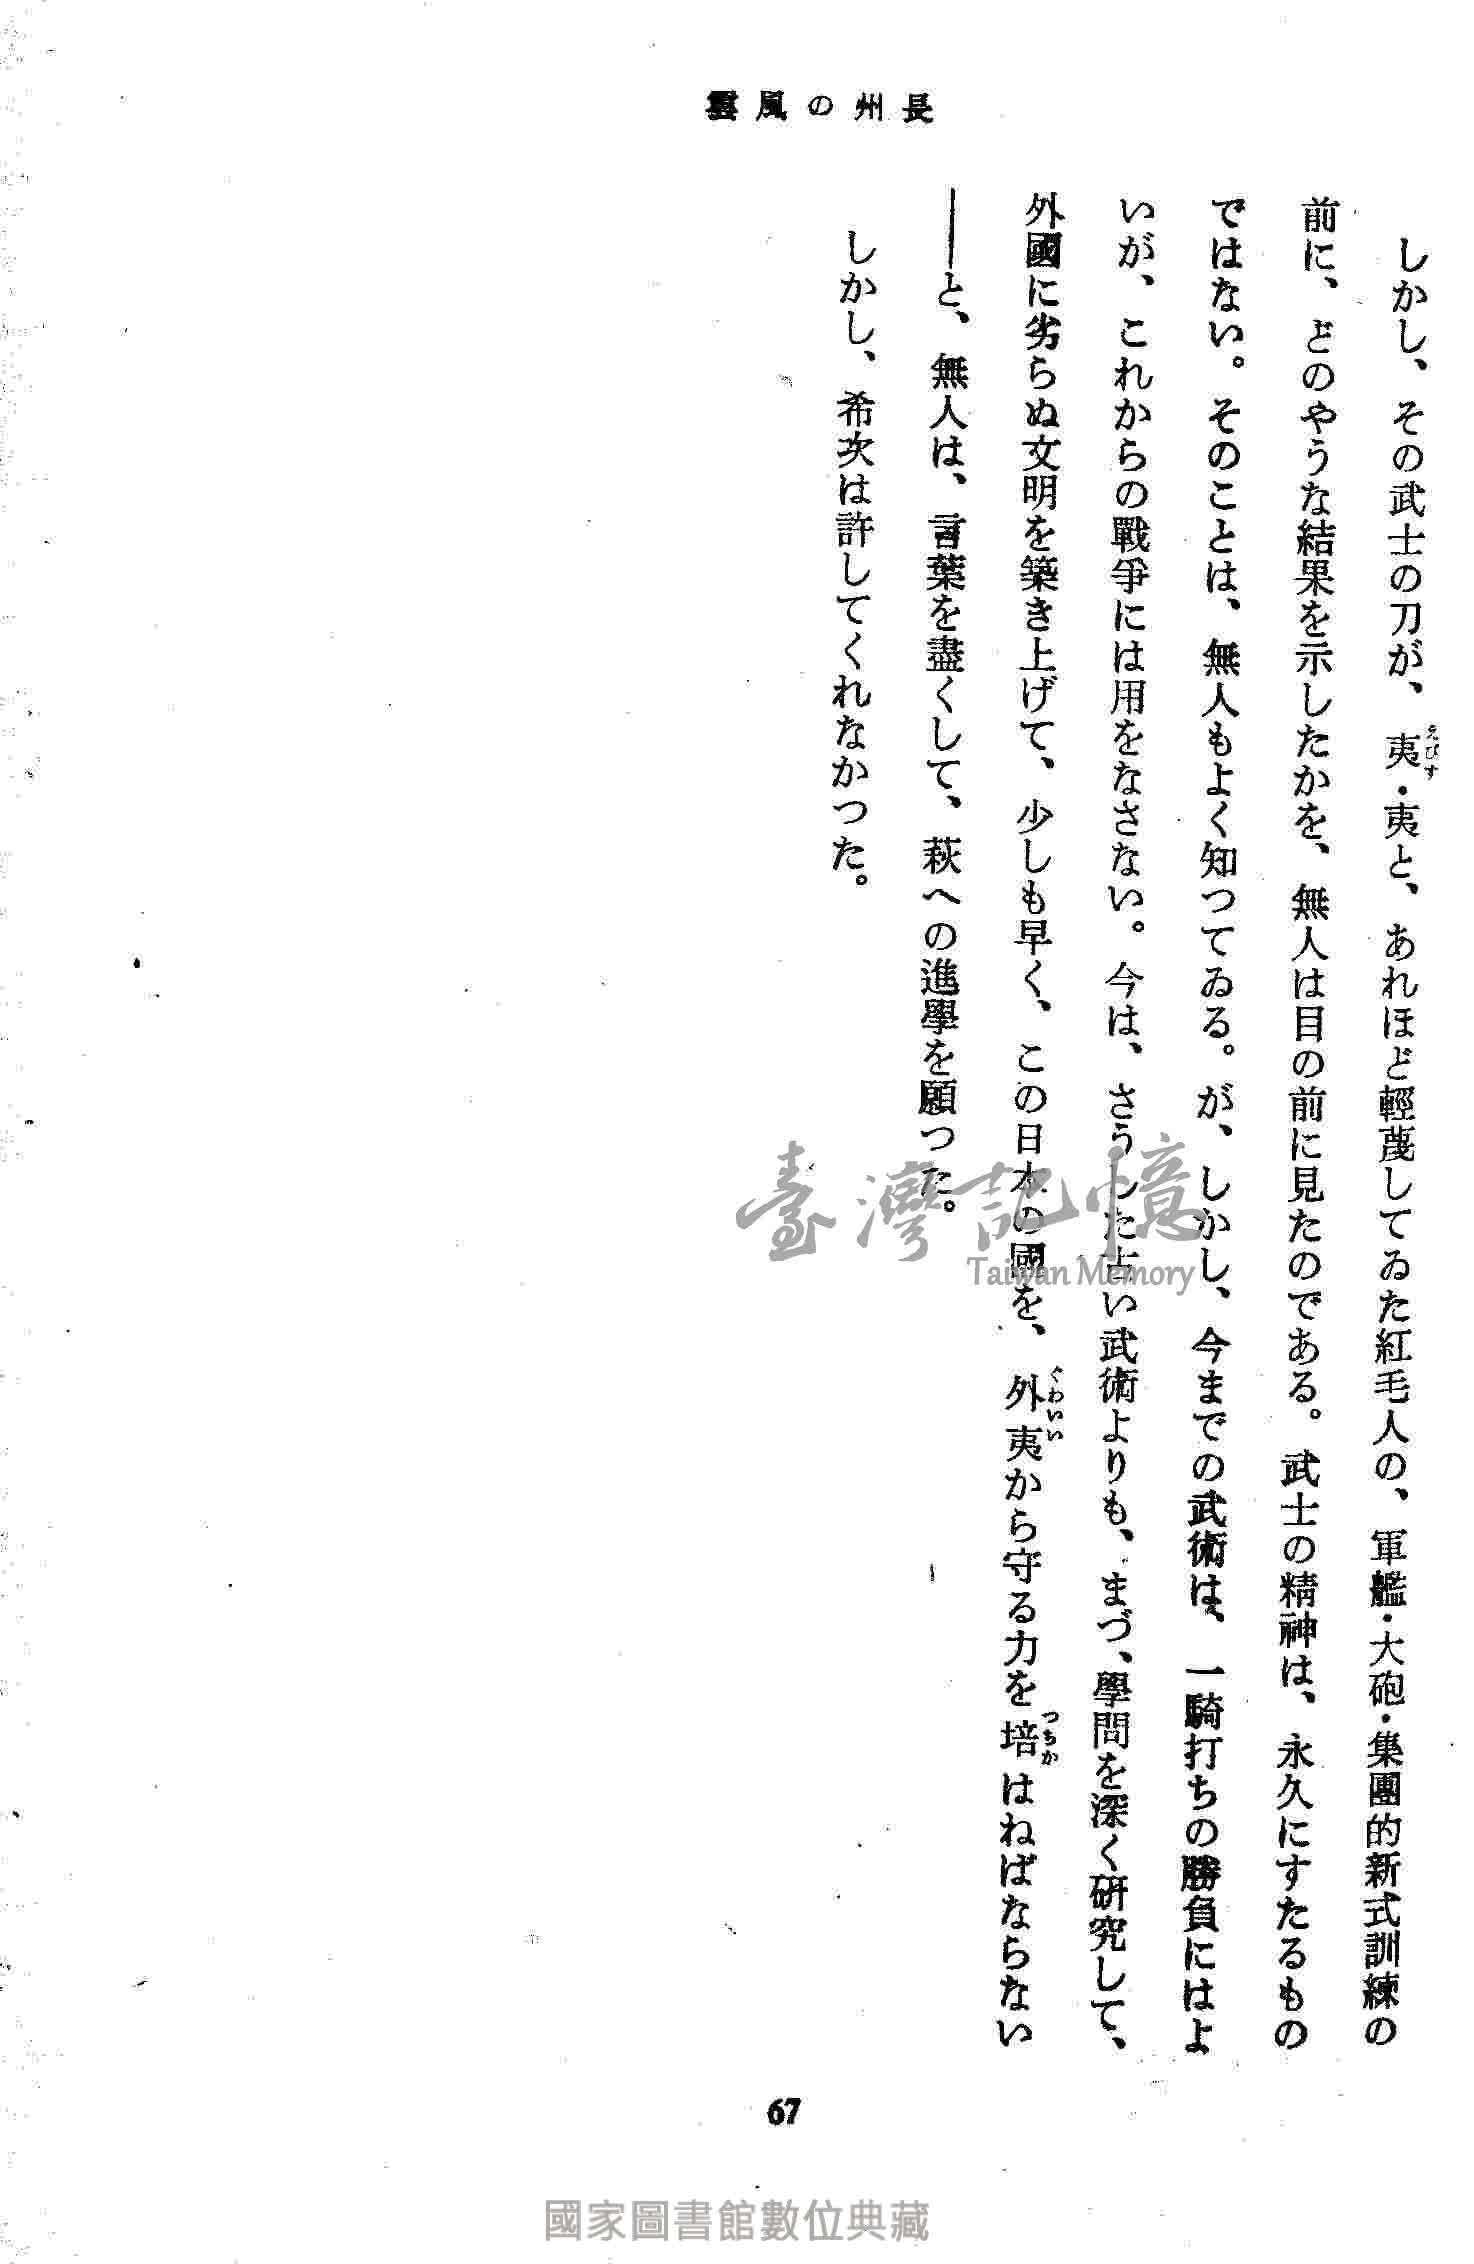 雲風の州長
しかし、その武士の刀が、夷・夷と、あれほど輕蔑してゐた紅毛人の、軍艦・大砲・集團的新式訓練の
えびす
前に、どのやうな結果を示したかを、無人は目の前に見たのである。武士の精神は、永久にすたるもの
ではない。そのことは、無人もよく知つてゐる。が、しかし、今までの武術は、一騎打ちの勝負にはよ
いが、これからの戰爭には用をなさない。今は、さうした古い武術よりも、まづ、學問を深く研究して、
外國に劣らぬ文明を築き上げて、少しも早く、この日本の國を、外夷から守る力を培はねばならない
ぐわいい
つちか
――と、無人は、言葉を盡くして、萩への進學を願つた。
しかし、希次は許してくれなかつた。
67
臺灣記憶
Taiwan Memory
國家圖書館數位典藏